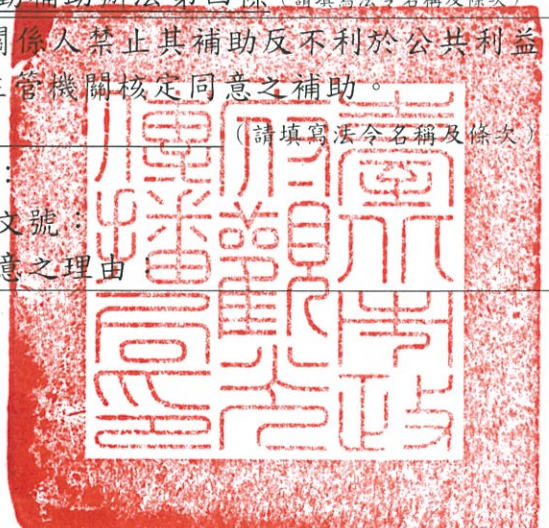 動補助辦法第四條（請填寫法令名稱及條次）
關係人禁止其補助反不利於公共利益
主管機關核定同意之補助。
（請填寫法令名稱及條次）
：
文號：
意之理由：
臺北市政
府觀光
傳播局印